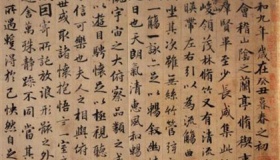 和九年歲在癸丑暮春之初
會稽山陰之蘭亭脩稧事
群賢畢至少長咸集此
崇山峻領茂林脩竹又有清流
帶左右引以為流觴曲
坐其次雖無絲竹管弦
一觴一詠亦足以暢敘幽
日也天朗氣清惠風和暢
宇宙之大俯察品類之
以遊目騁懷足以極視聽
信可樂也夫人之相與
世或取諸懷抱悟言一室
因寄所託放浪形骸之外
舍萬殊靜躁不同當其
所遇蹔得於己怏然自